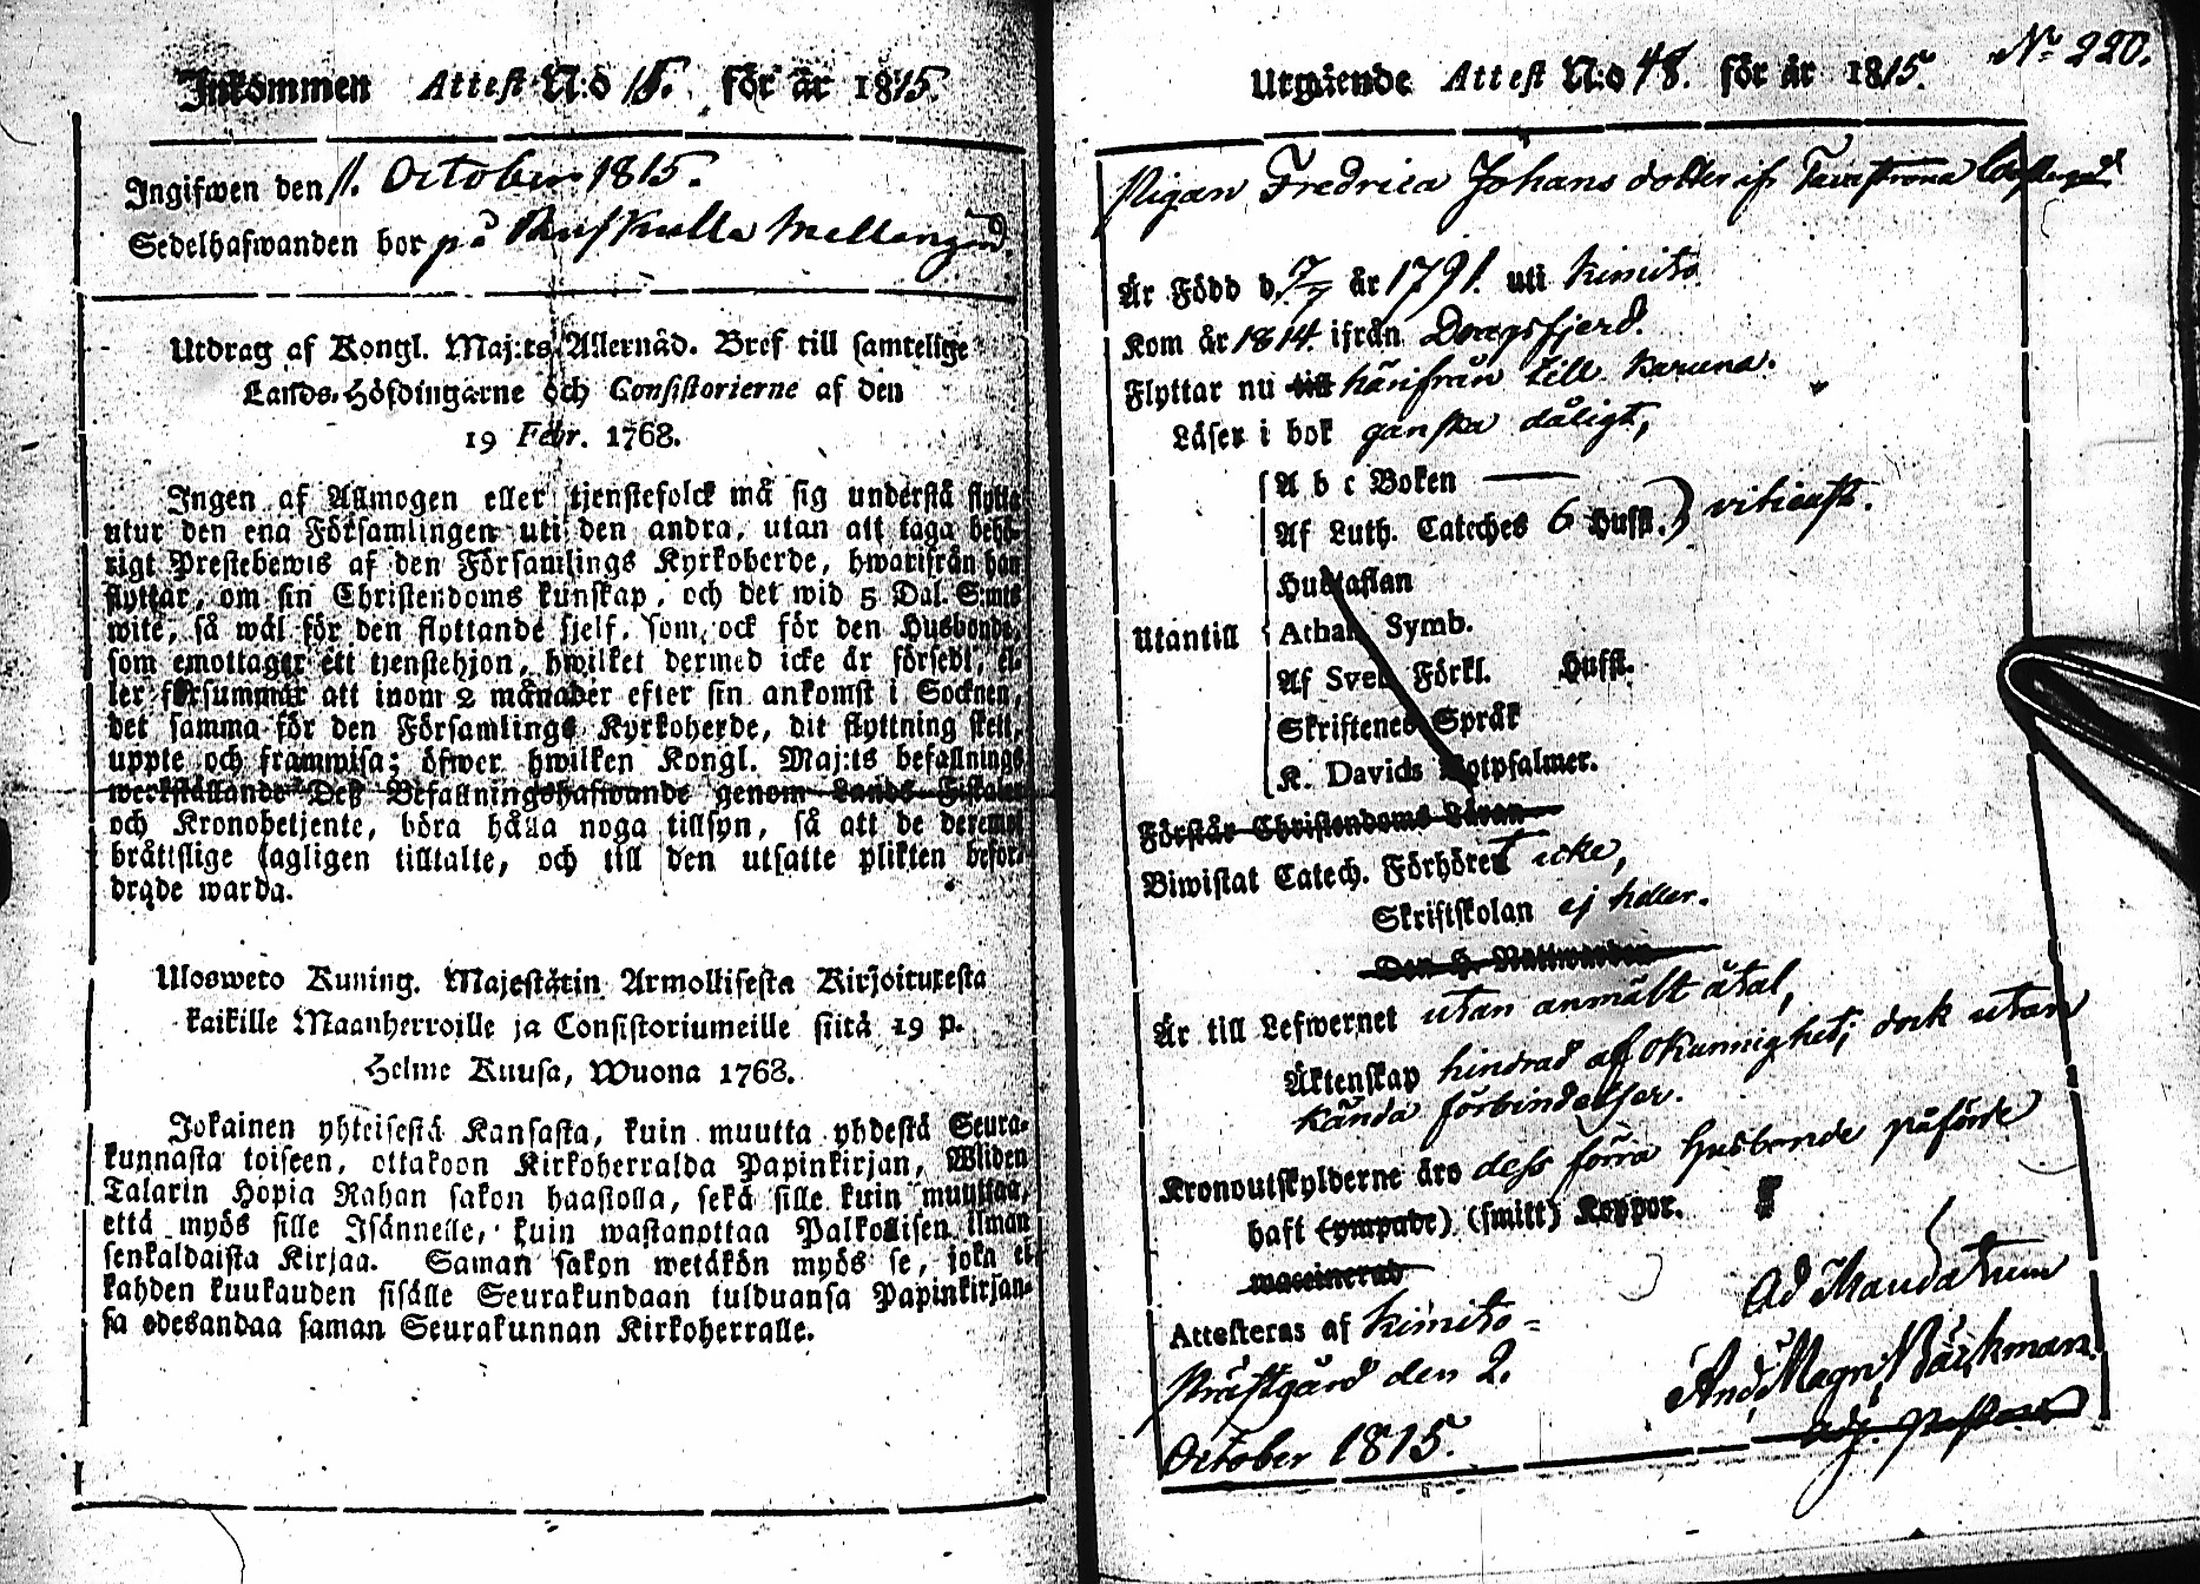 Inkommen Attest N:o 15. för år 1815.
Ingifwen den 11. October 1815.
Sedelhafwanden bor på Mellangård.
Utdrag af Kongl. Maj:ts Allernåd. Bref till samtelige
Lands-Höfdingarne och Consistorierne af den
19 Febr. 1768.
Ingen af Allmogen eller tjenstefolck må sig understå flytta
utur den ena Församlingen uti den andra, utan att taga behö-
rigt Prestebewis af den Församlings Kyrkoherde, hwarifrån han
flyttar, om sin Christendoms kunskap, och det wid 5 Dal. S:mts
wite, så wäl för den flyttande sjelf, som ock för den Husbonde,
som emottager ett tjenstehjon, hwilket dermed icke är försedt, el-
ler försummar att inom 2 månader efter sin ankomst i Socknen,
det samma för den Församlings Kyrkoherde, dit flyttning skett,
uppte och framwisa; öfwer hwilken Kongl. Maj:ts befallnings
werkställande Deß Befallningshafwande genom Lands-Fiskaler
och Kronobetjente, böra hålla noga tillsyn, så att de deremot
bråttslige lagligen tilltalte, och till den utsatte plikten beför-
drade warda.
Ulosweto Kuning. Majestätin Armollisesta Kirjoituxesta
kaikille Maanherroille ja Consistoriumeille siitä 19 p.
Helme Kuusa, Wuona 1768.
Jokainen yhteisestä Kansasta, kuin muutta yhdestä Seura-
kunnasta toiseen, ottakoon Kirkoherralda Papinkirjan, Wliden
Talarin Hopia Rahan sakon haastolla, sekä sille kuin muuttaa,
että myös sille Isännelle, kuin wastanottaa Palkollisen ilman
senkaldaista Kirjaa. Saman sakon wetäkön myös se, joka ei
kahden kuukauden sisälle Seurakundaan tulduansa Papinkirjan-
sa edesandaa saman Seurakunnan Kirkoherralle.
No 220.
Utgående Attest N:o 48. för år 1815.
Pigan Fredrica Johans dotter if.
Är Född d. 7/7 år 1791. uti Kimito
Kom år 1814. ifrån Dragsfjerd.
Flyttar nu till härifrån till Karuna.
Läser i bok ganska dåligt,
A b c Boken
Af Luth. Cateches 6 Hufst.
Hustaflan
Utantill Athan. Symb.
Af Sveb. Förkl. Hufst.
Skriftenes Språk
K. Davids Botpsalmer.
Förstår Christendoms Läran
Biwistat Catech. Förhöret icke,
Skriftskolan ej heller.
Den H. Nattwarden
Är till Lefwernet utan anmält åtal,
Äktenskap hindrad af okunnighet; dock utan
kända förbindelser.
Kronoutskylderne äro dess förra Husbonde påförde
haft (ympade) (smitt) Koppor.
waccinerad
Ad Mandatum
Attesteras af Kimito
And. Magn. Bäckman.
Prästgård den 2.
October 1815.